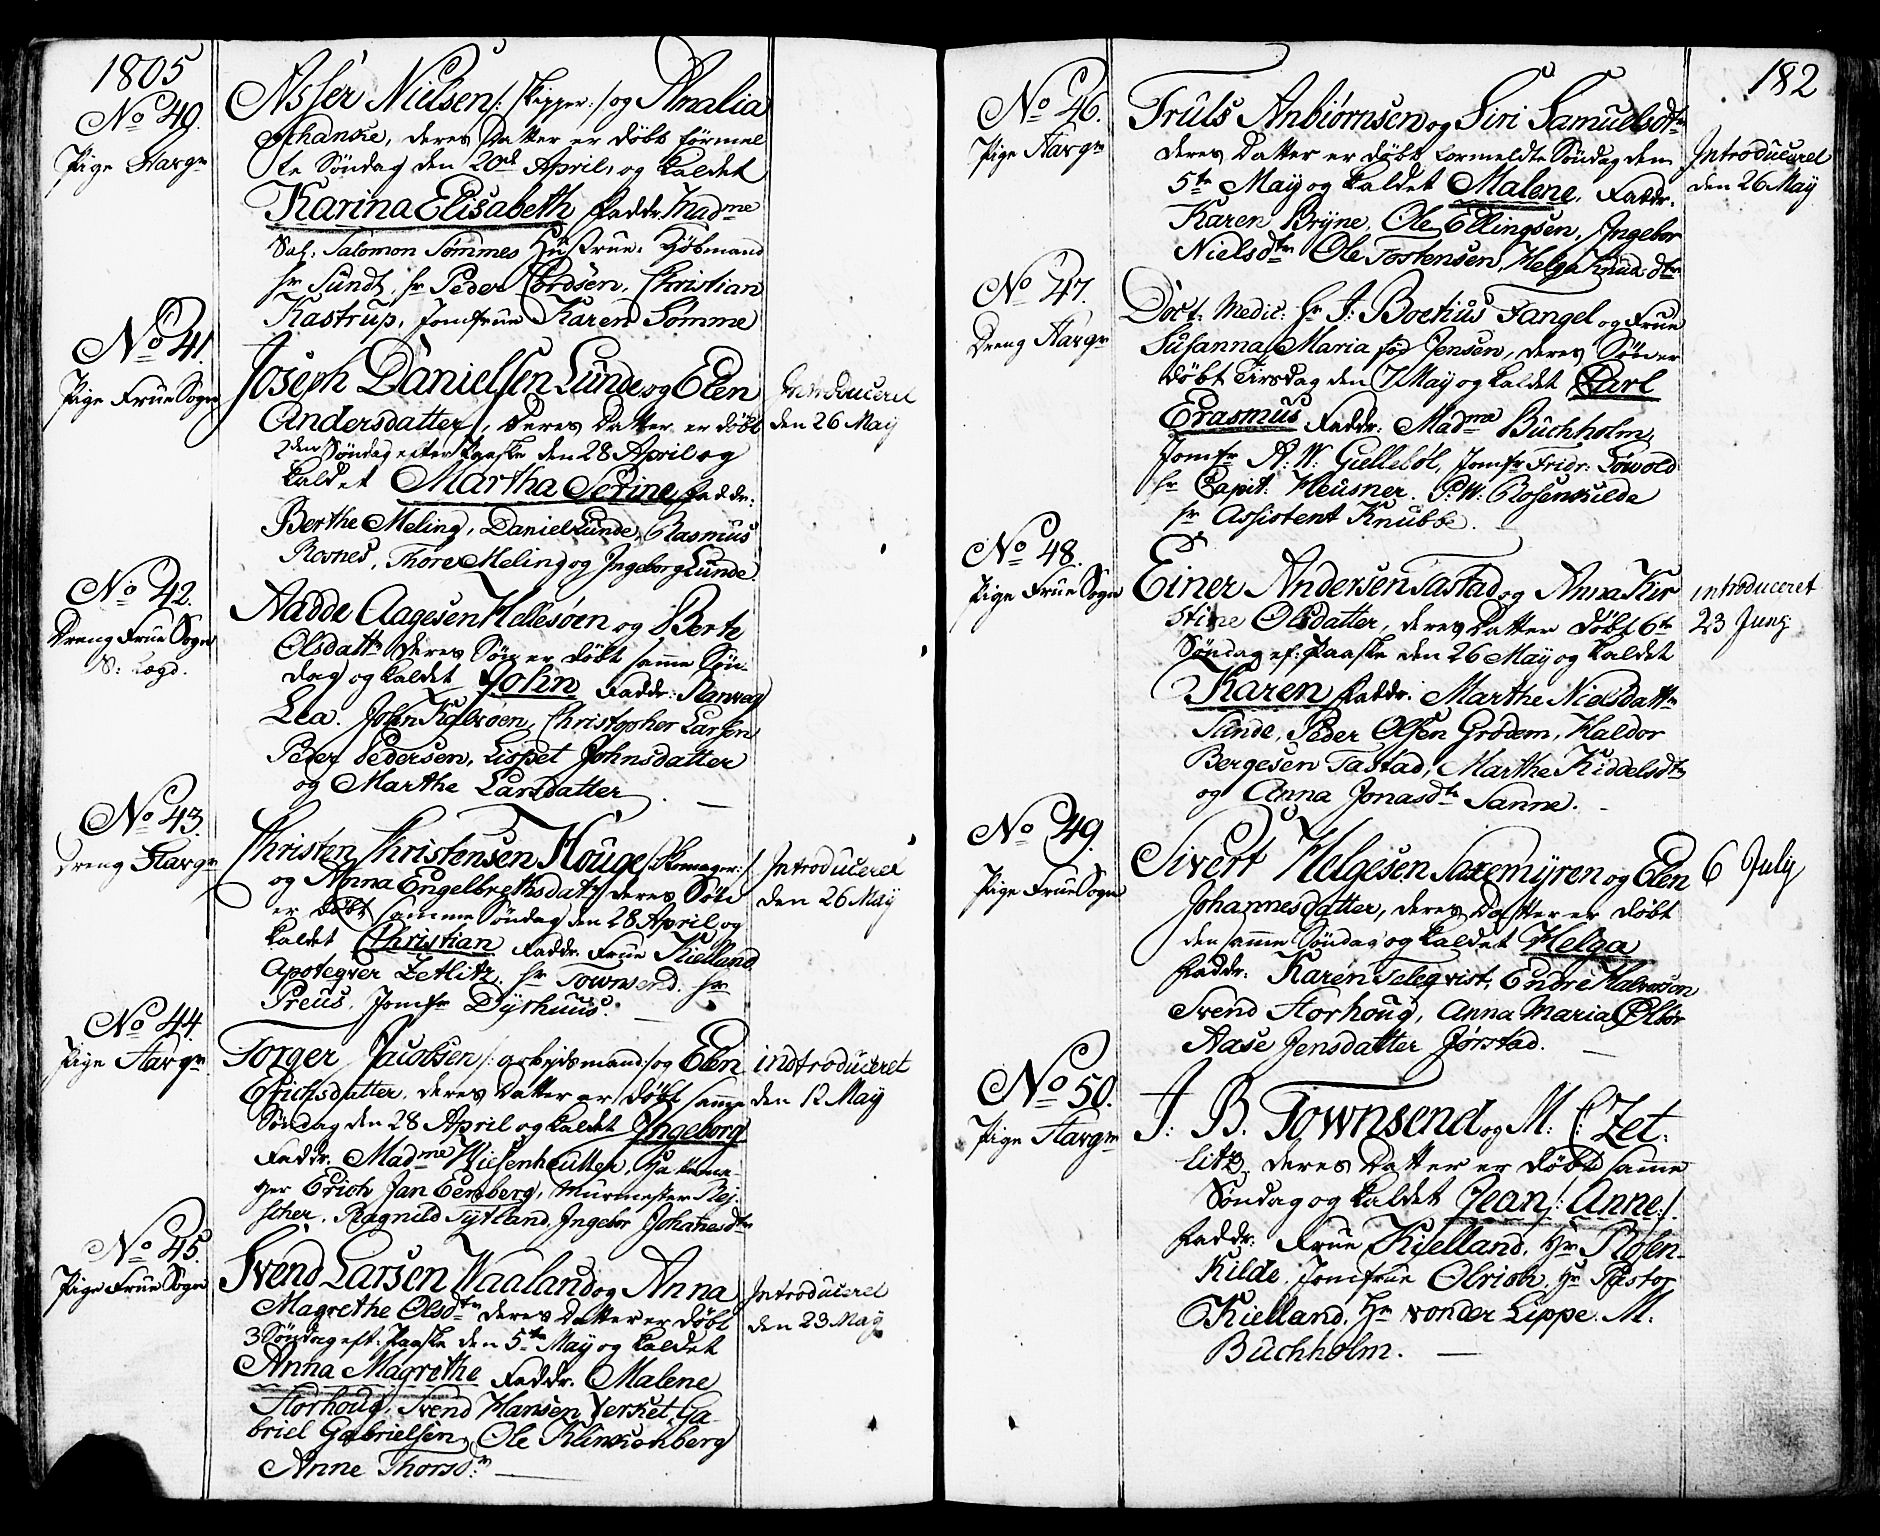 1805
No 40.
Pige Stavgr
Asser Nielsen /: skipper :/ og Amalia
Schanke, deres Datter er döbt formel
te Söndag den April, og kaldet
Karina Elisabeth Faddr. Madme
Sal. Salomon Sømmes Hustrue. Kjöbmand
hr Sundt, hr Peder Cordsen, Christian
Kastrup, Jomfrue Karen Sømme
No 41.
Pige Frue Sogn
Joseph Danielsen Lunde og Elen
Andersdatter, deres Datter er döbt
2den Söndag efter Paaske den 28 April og
kaldet Martha Serine Faddr:
Berthe Meling, Daniel Lunde, Rasmus
Revnes, Thore Meling og Ingeborg Lunde.
Introduceret
den 26 May
No 42.
Dreng Frue Sogn
S: Lægd.
Aadde Aagesen Hellesøen og Berte
Olsdattr deres Sön er döbt samme Sön-
dag og kaldet John Faddr:
Lea. John Christopher Larsen
Peder Pedersen, Lispet Johnsdatter
og Marthe Larsdatter.
No 43.
Dreng Stavgr
Christen Christensen Houge /: Skomager :/
og Anna Engelbrethsdatr deres Sön
er döbt samme Söndag den 28 April og
kaldet Christian Faddr. Frue Kielland
Apoteqver Zetlitz. hr Townsend. hr
Preus. Jomfr Dythuus.
Introduceret
den 26 May
No 44.
Pige Stavgr
Torger Jacobsen /: arbejdsmand :/ og Elen
Erichsdatter, deres Datter er döbt samme
Söndag den 28 April og kaldet Ingeborg
Faddr. Madme Wiesenheutter,
ger Erich Jan Eenberg, Murmester Rej
scher. Ragnild Tytland, Ingebor Johanesdtr
indtroduceret
den 12 May
No 45.
Pige Frue Sogn
Svend Larsen Waaland og Anna
Magrethe Olsdtr deres Datter er döbt
3 Söndag eft: Paaske den 5te May og kaldet
Anna Magrethe Faddr. Malene
Storhoug, Svend Hansen Verket, Ga-
briel Gabrielsen, Ole Klinkenberg
Anne Thorsd:r
Introduceret
den 23 May
182
No 46.
Pige Stavgr
Truls Anbiørnsen og Siri Samuelsdtr
deres Datter er döbt formeldte Söndag den
5te May og kaldet Malene. Faddr.
Karen Bryne, Ole Ellingsen, Ingebor
Nielsdtr Ole Tostensen, Helga Knudsdtr
Introduceret
den 26 May
No 47.
Dreng Stavgr
Doct. Medic: hr J: Boetius Fangel og Frue
Susanna Maria föd Jensen, deres Sön er
döbt Tirsdag den 7 May og kaldet Carl
Erasmus Faddr: Madme Buchholm,
Jomfr A: W: Gielleböl, Jomfr Fridr: Löwold
hr Capit: Heusner. P: W: Rosenkilde
hr Assistent Knubbe.
No 48.
Pige Frue Sogn
Einer Andersen Tastad og Anna Kir
stine Olsdatter, deres Datter döbt 6te
Söndag ef: Paaske den 26 May og kaldet
Karen Faddr. Marthe Nielsdattr
Sunde, Peder Olsen Grödem, Haldor
Bergesen Tastad, Marthe Kiddelsdtr
og Anna Jonasdtr Sanne.
introduceret
23 Junj
No 49.
Pige Frue Sogn
Sivert Helgesen Saxemyren og Elen
Johannesdatter, deres Datter er döbt
den samme Söndag og kaldet Helga
Faddr. Karen Teleqvist, Endre Halvorson
Svend Storhoug, Anna Maria
Aase Jensdatter Jørstad.
6 July
No 50.
Pige Stavgr
J: B. Townsend og M: C: Zet:
litz, deres Datter er döbt samme
Söndag og kaldet Jean /: Anne :/.
Faddr: Frue Kielland, Hr Rosen-
kilde, Jomfrue Olrich, Hr Pastor
Kielland. Hr vonder Lippe. M:
Buchholm.